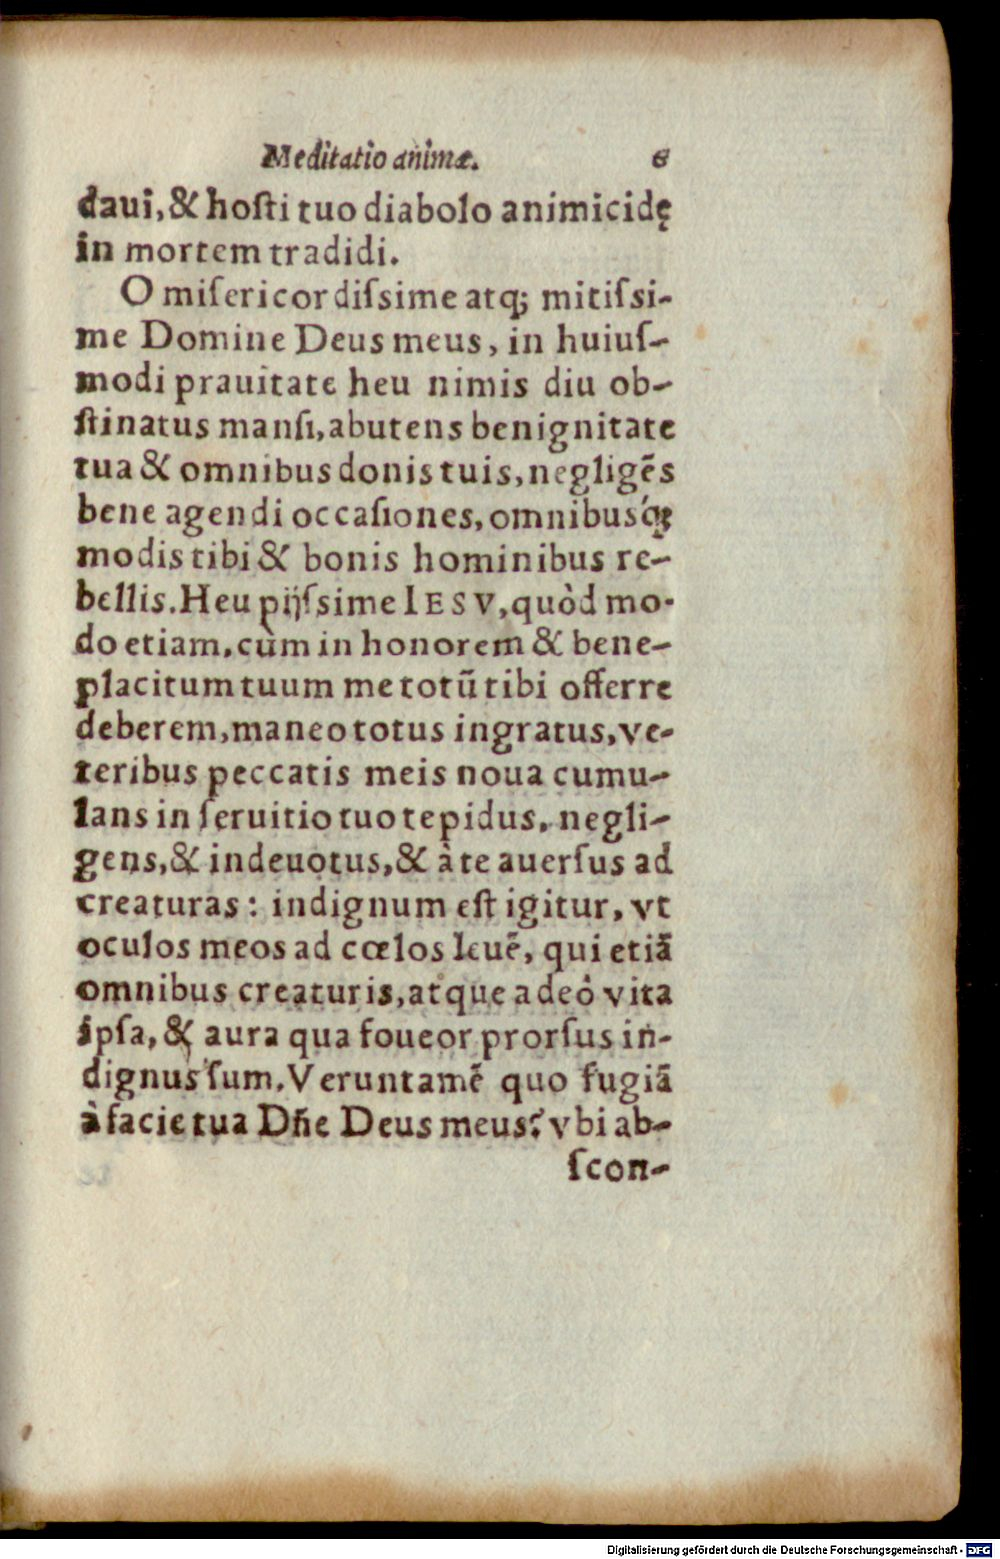 Meditatio animæ. 6
daui, & hoſti tuo diabolo animicidę
in mortem tradidi.
O miſericordiſsime atq; mitiſsi-
me Domine Deus meus, in huiuſ-
modi prauitate heu nimis diu ob-
ſtinatus manſi, abutens benignitate
tua & omnibus donis tuis, negligẽs
bene agendi occaſiones, omnibusq́;
modis tibi & bonis hominibus re-
bellis. Heu pijſsime IESV, quòd mo-
do etiam, cùm in honorem & bene-
placitum tuum me totũ tibi offerre
deberem, maneo totus ingratus, ve-
teribus peccatis meis noua cumu-
lans in ſeruitio tuo tepidus, negli-
gens, & indeuotus, & à te auerſus ad
creaturas: indignum eſt igitur, vt
oculos meos ad cœlos leuẽ, qui etiã
omnibus creaturis, atque adeò vita
ipſa, & aura qua foueor prorſus in-
dignus ſum. Veruntamẽ quo fugiã
à facie tua Dñe Deus meus? vbi ab-
ſcon-
Digitalisierung gefördert durch die Deutsche Forschungsgemeinschaft - DFG